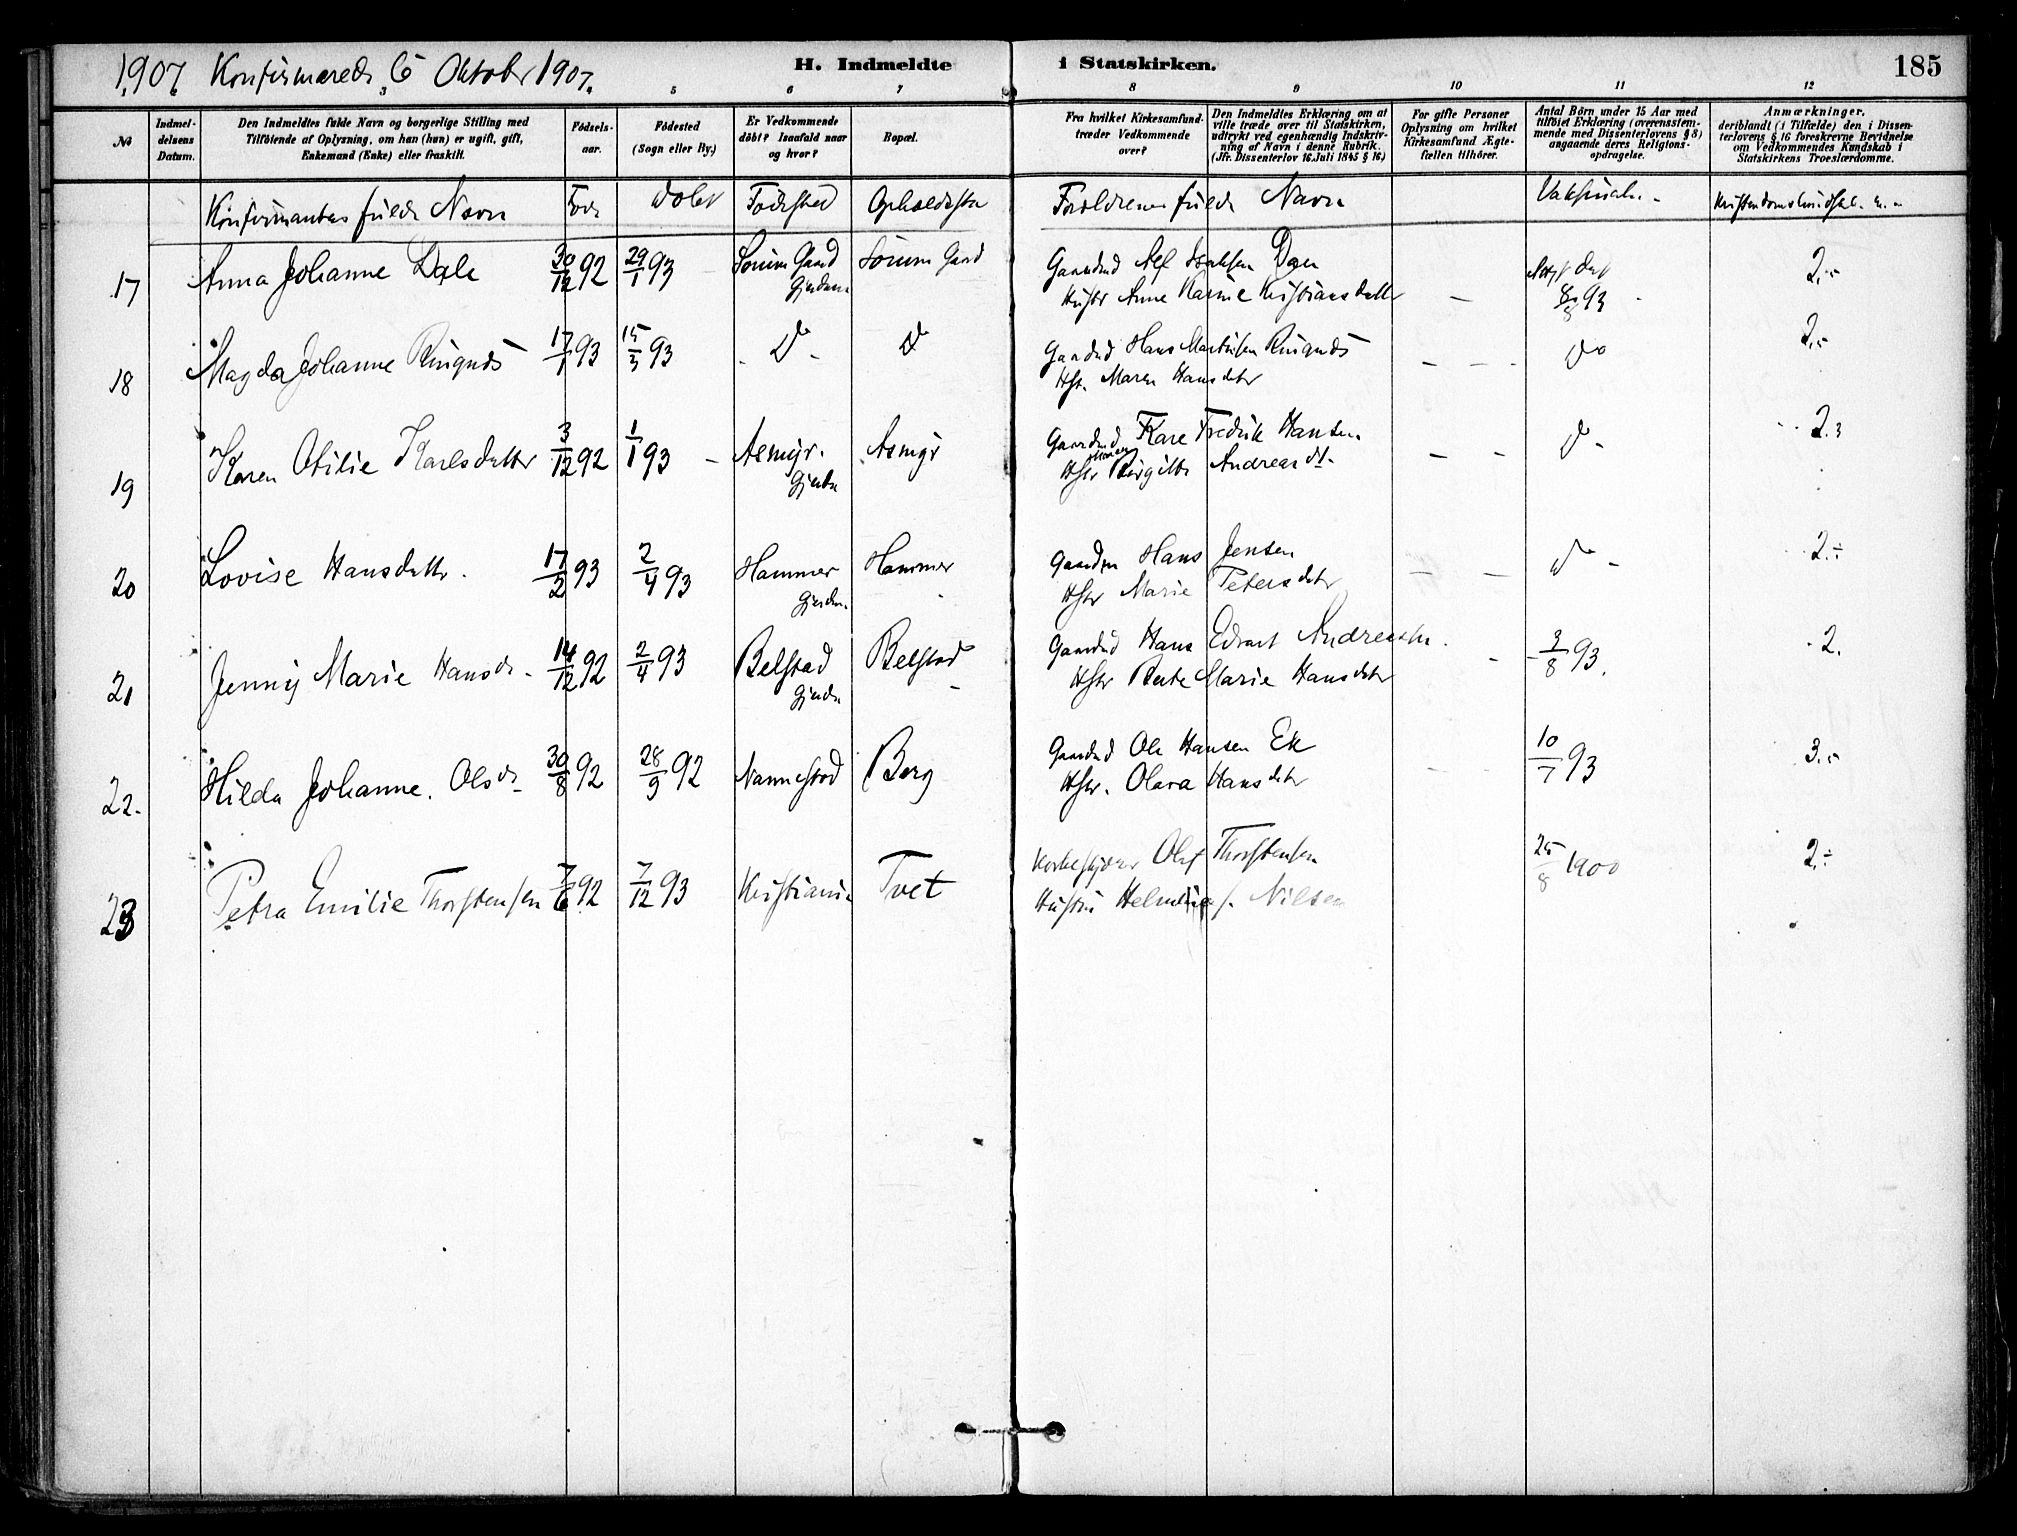 1907 Konfirmerede 6 Oktober 1907.
H. Indmeldte i Statskirken. 185
3 4 5 6 7 8 9 10 11 12
No
Indmeldelsens Datum.
Den Indmeldtes fulde Navn og borgerlige Stilling med
Tilföiende af Oplysning, om han (hun) er ugift, gift,
Enkemand (Enke) eller fraskilt.
Fødsels-
aar.
Födested
(Sogn eller By.)
Er Vedkommende
döbt? Isaafald naar
og hvor?
Bopæl.
Fra hvilket Kirkesamfund
træder Vedkommende
over?
Den Indmeldtes Erklæring om at
ville træde over til Statskirken,
udtrykt ved egenhændig Indskriv-
ning af Navn i denne Rubrik.
(Jfr. Dissenterlov 16 Juli 1845 § 16.)
For gifte Personer
Oplysning om hvilket
Kirkesamfund Ægte-
fællen tilhörer.
Antal Börn under 15 Aar med
tilföiet Erklæring (overensstem-
mende med Dissenterlovens § 8)
angaaende deres Religions-
opdragelse.
Anmærkninger,
deriblandt (i Tilfælde) den i Dissen-
terlovens § 16 foreskrevne Bevidnelse
om Vedkommendes Kundskab i
Statskirkens Troeslærdomme.
Konfirmantens fulde Navn Født Døbt Fødested Opholdssted Forældrenes fulde Navn
17 Anna Johanne Dale 30/12 92 29/1 93 Sørum Gaard Sørum Gard Gaardmd Isaksen 2.-
Gjerdrum Hustr Anne Karine Kristiansdatter 93
18 Magda Johanne Ringnes 17/1 93 15/3 93 Do Do Gaardmd Hans Martinsen Ringnes Do 2.-
Hst. Maren Hansdtr
19 Karen Otilie Karlsdatter 3/12 92 1/1 93 Asmyr. Asmyr Gaardmd Kare Fredrik Hansen Do 2.3
Gjerdr Hstr Birgitte Andreasdt.
20 Lovise Hansdattr. 17/2 93 2/4 93 Hammer Hammer Gaardm Hans Jensen Do 2.-
Gjerdr. Hstr Marie Petersdtr
21 Jenny Marie Hansdr. 14/12 92 2/4 93 Belstad Belstad Gaardmd Hans Edvart Andreassen. 3/8 93. 2.
Gjerdr Hstr Berte Marie Hansdtr
22. Hilda Johanne Olsdr 30/8 92 28/9 92 Nannestad Berg Gaardmd Ole Hansen Ek 10/7 93 3.-
Hstr. Olava Hansdtr
23 Petra Emilie Thorstensen 7/6 92 7/12 93 Kristiania Tvet Olaf Thorstensen 25/8 1900 2.-
Hustru Helmine f. Nilsen